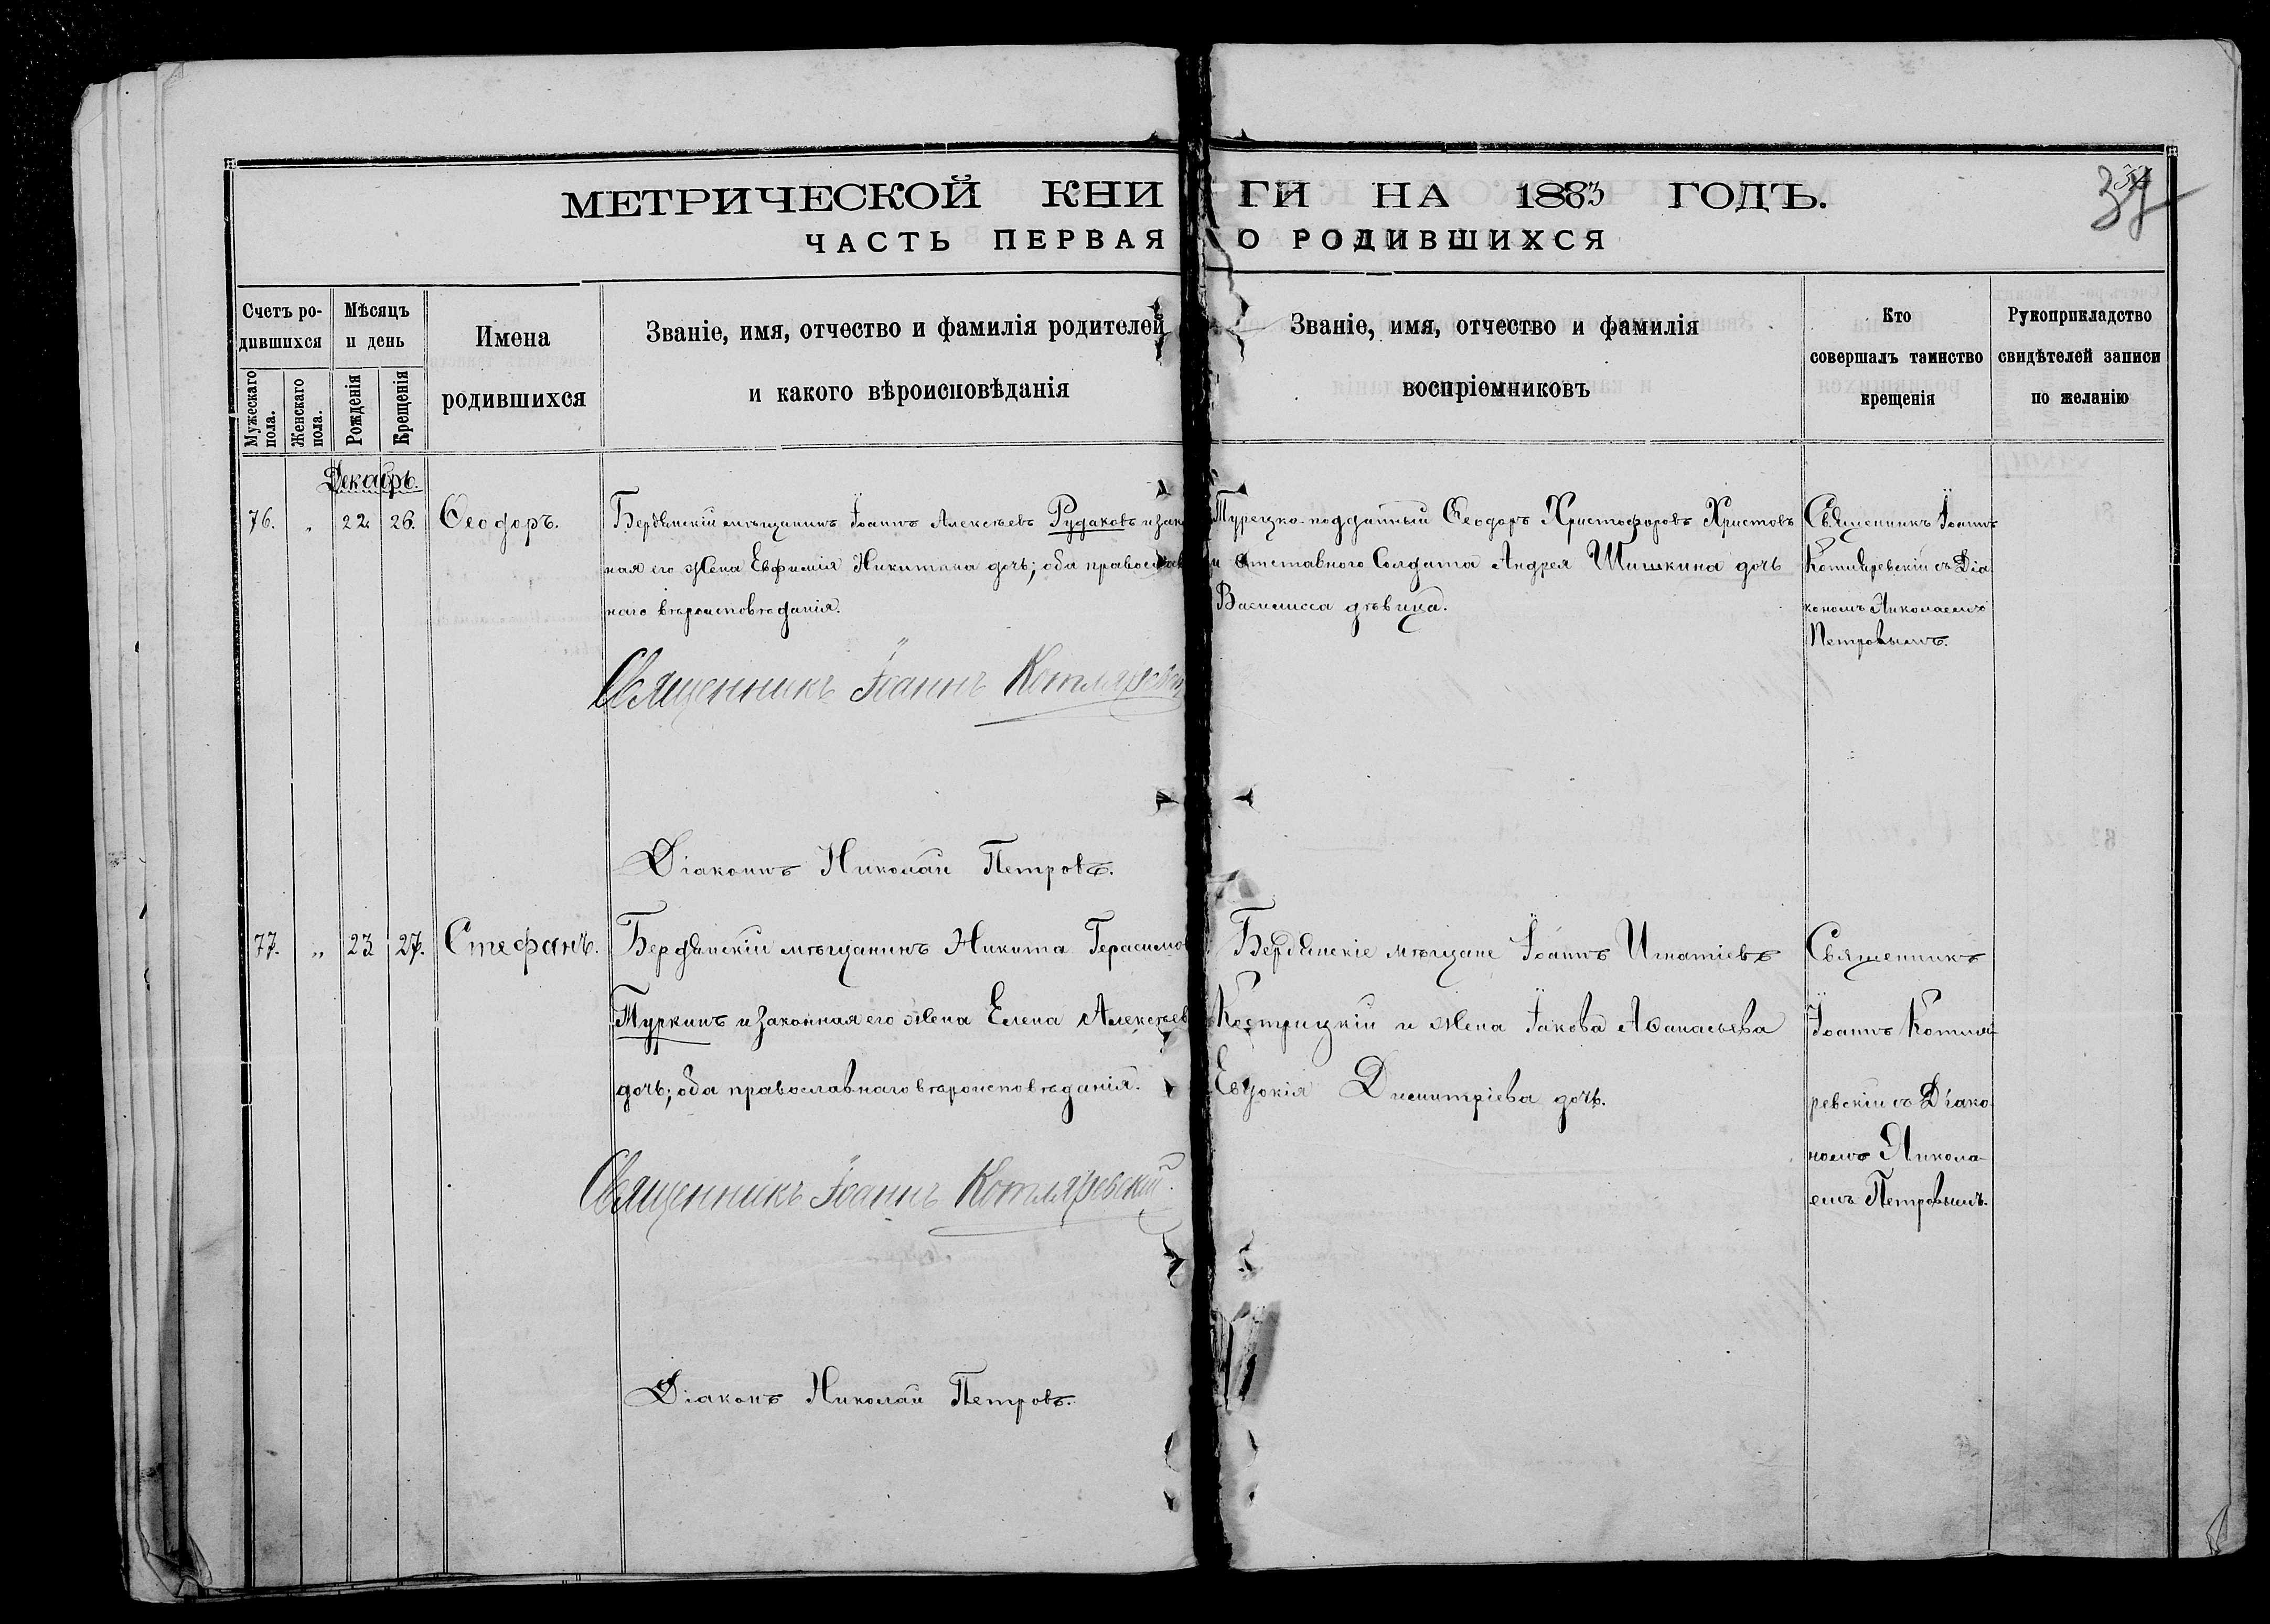 МЕТРИЧЕСКОЙ КНИГИ НА 1883 ГОДЪ.
ЧАСТЬ ПЕРВАЯ О РОДИВШИХСЯ
Счетъ ро-
дившихся
Мужескаго пола.
Женскаго пола.
Мѣсяцъ
и день
Рожденія
Крещенія
Имена
родившихся
Званіе, имя, отчество и фамилія родителей
и какого вѣроисповѣданія
Званіе, имя, отчество и фамилія
воспріемниковъ
Кто
совершалъ таинство
крещенія
Рукоприкладство
свидѣтелей записи
по желанію
Декабрь.
76. „ 22 26. Ѳеодоръ.
Бердянскій мѣщанинъ Іоаннъ Алексѣевъ Рудаковъ и зако
ная его жена Евфимія Никитина дочь; оба православ
наго вѣроисповѣданія.
Священникъ Іоаннъ Котляревскій
Діаконъ Николай Петровъ.
Турецко-подданный Ѳеодоръ Христофоровъ Христовъ
и отставного Солдата Андрея Шишкина дочь
Василисса дѣвица.
Священникъ Іоаннъ
Котляревскій съ Діа
кономъ Николаемъ
Петровымъ.
77. „ 23 27. Стефанъ.
Бердянскій мѣщанинъ Никита Герасимов
Туркинъ и законная его жена Елена Алексѣев
дочь; оба православнаго вѣроисповѣданія.
Священникъ Іоаннъ Котляревскій.
Діаконъ Николай Петровъ.
Бердянскіе мѣщане Іоаннъ Игнатіевъ
Кострицкій и жена Іакова Аѳанасьева
Евдокія Димитріева дочь.
Священникъ
Іоаннъ Котля-
ревскій съ Діако
номъ Никола-
емъ Петровымъ.